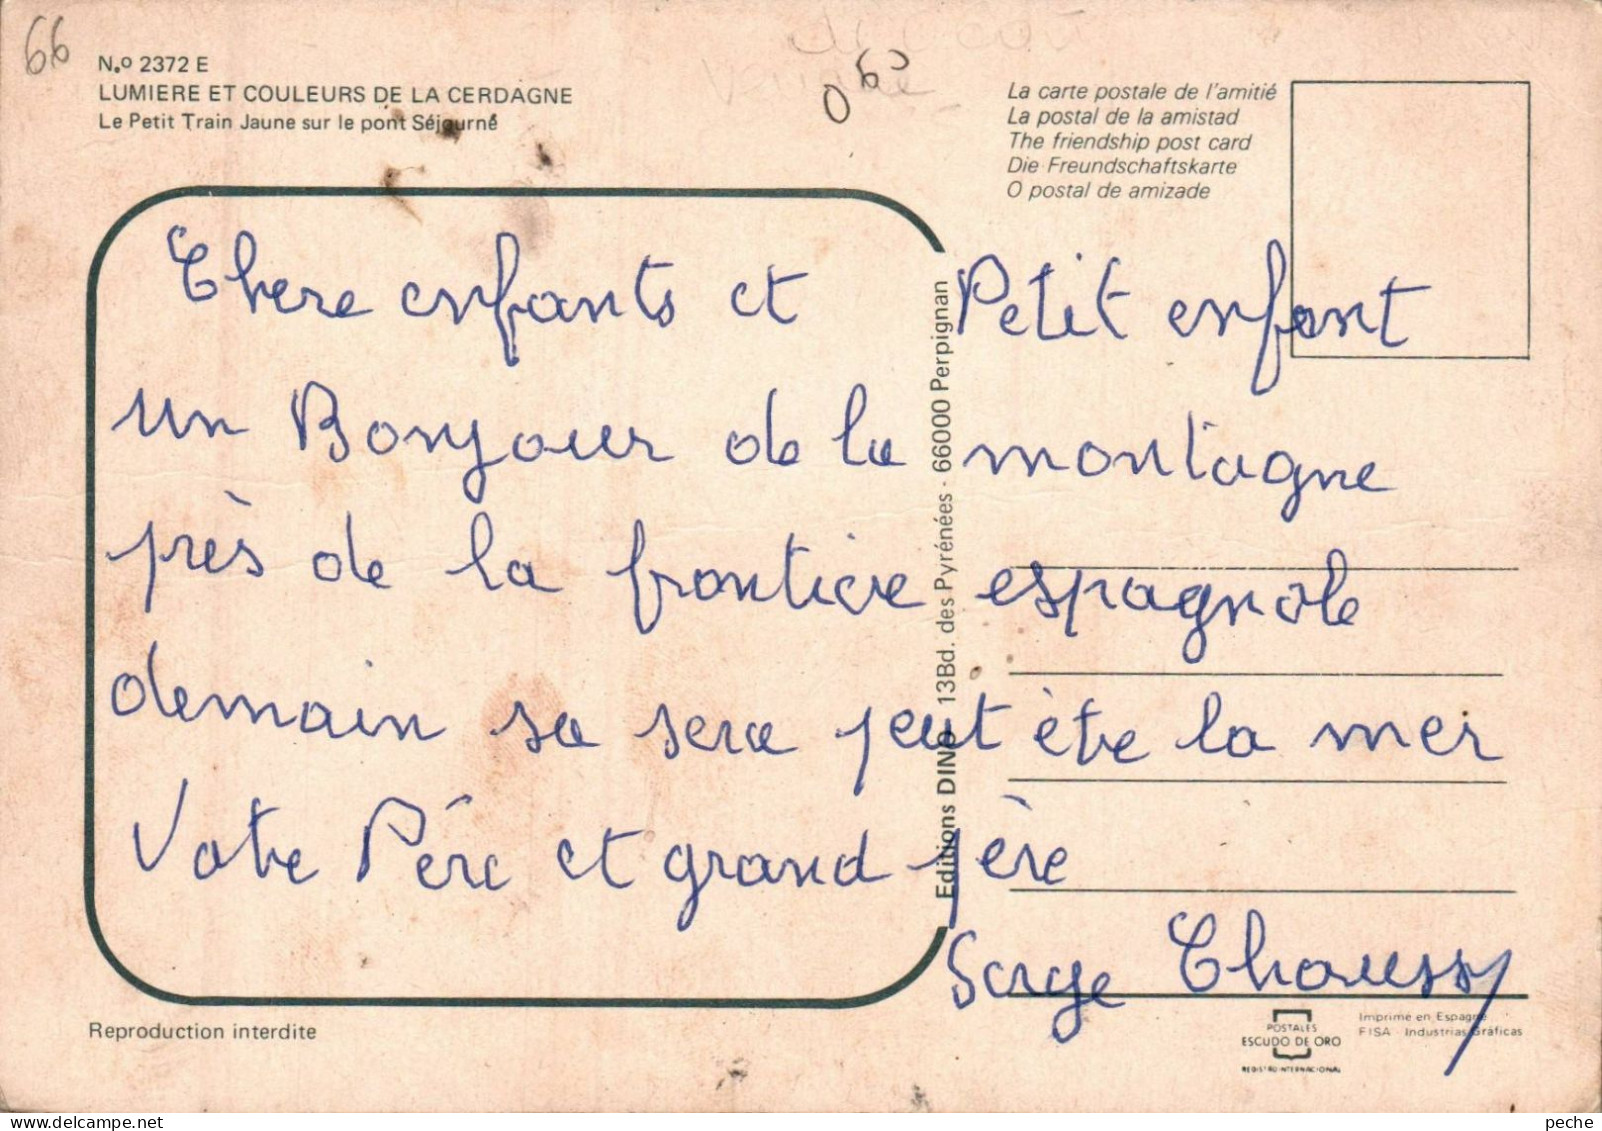 66
N.º 2372 E
LUMIERE ET COULEURS DE LA CERDAGNE
Le Petit Train Jaune sur le pont Séjourné
0 60
La carte postale de l'amitié
La postal de la amistad
The friendship post card
Die Freundschaftskarte
O postal de amizade
Chere enfants et Petit enfant
un Bonjour de la montagne
près de la frontiere espagnole
demain sa sera peut ète la mer
Votre Pére et grand père
Serge Chaussy
Editions DINO 13Bd. des Pyrénées - 66000 Perpignan
Reproduction interdite
POSTALES
ESCUDO DE ORO
REGISTRO INTERNACIONAL
Imprime en Espagne
FISA - Industrias Gráficas
peche